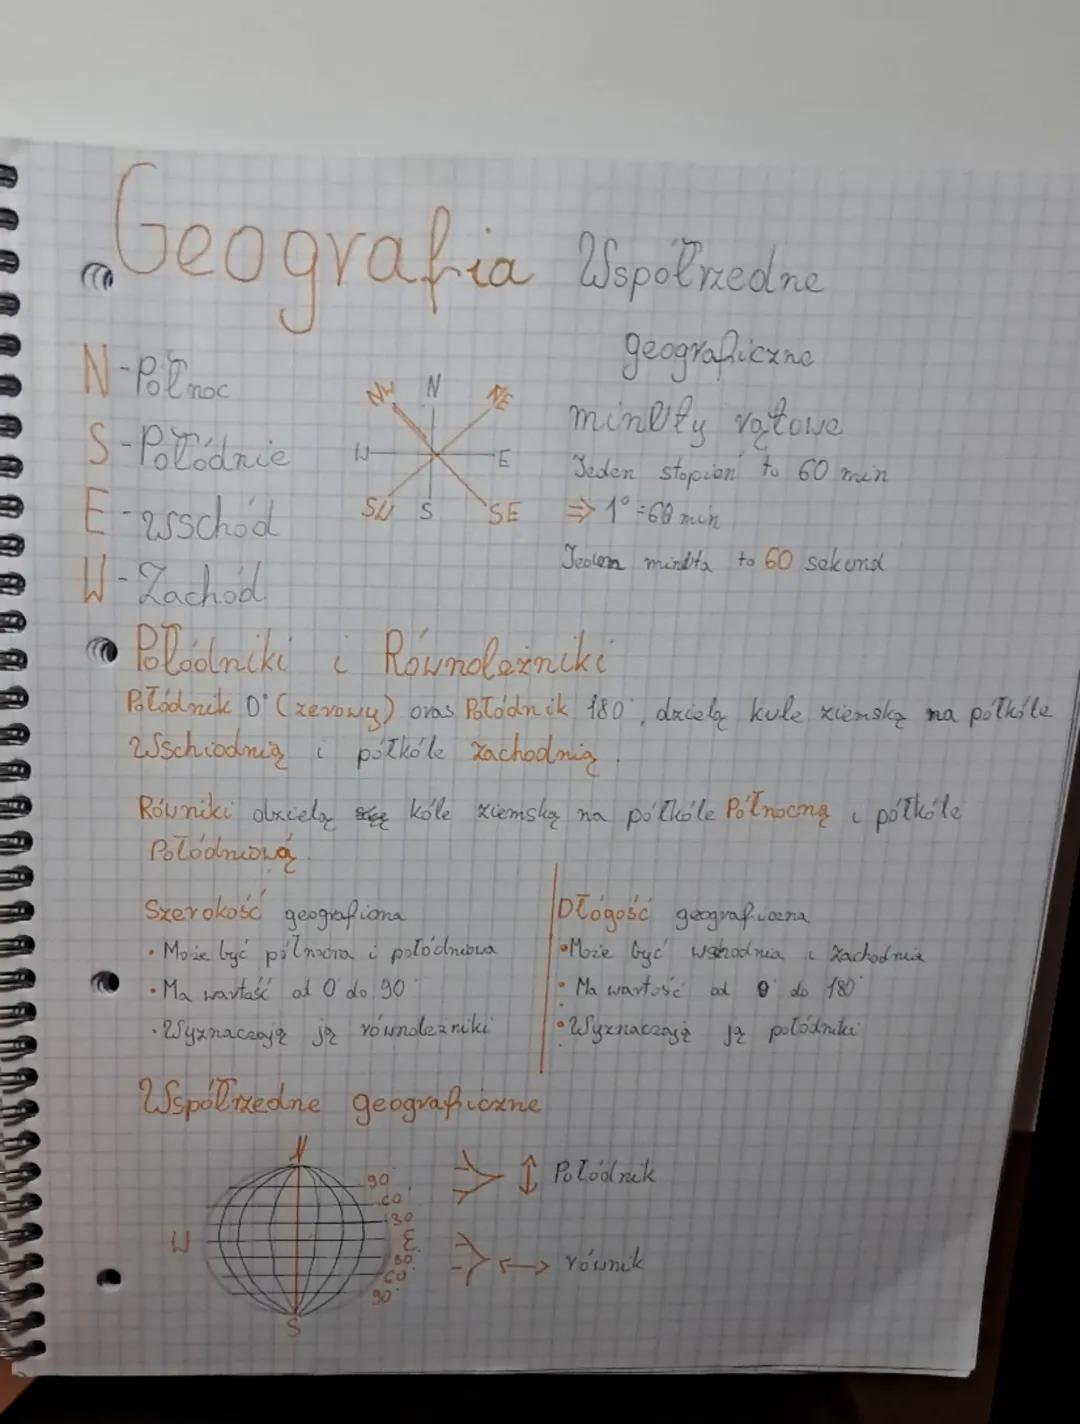 Geografia
Współrzedne
geograficzne
N - Północ
S - Połódnie
E - Wschód
W - Zachód
NW N NE
W E
SW S SE
minUty kątowe
Jeden stopień to 60 min
⇒ 1° = 60 min
Jeden minUta to 60 sekund
Połódniki i Równoleżniki
Połódnik 0° (zerowy) oraz Połódnik 180°, dzielą kule ziemską na półkóle
Wschiodnią i półkóle zachodnią.
Równiki dzielą kóle ziemską na półkóle Północną i półkóle
Połódniową.
Szerokość geograficzna
• Może być północna i połódniowa
• Ma wartość od 0° do 90°
• Wyznaczają ją równoleżniki
Długość geograficzna
• Może być wschodnia i zachodnia
• Ma wartość od 0° do 180°
• Wyznaczają ją połódniki
Współrzedne geograficzne
N
90°
60
30
W E
30
60
90°
S
↕ Połódnik
↔ równik